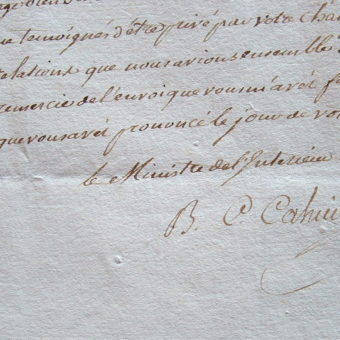 temoignés d'être privé par votre
relations que nous avions ensemble
remercie de l'envoi que vous m'avez f
que vous avez prononcé le jour de vo
le Ministre de l'Interieur
B. C Cahie